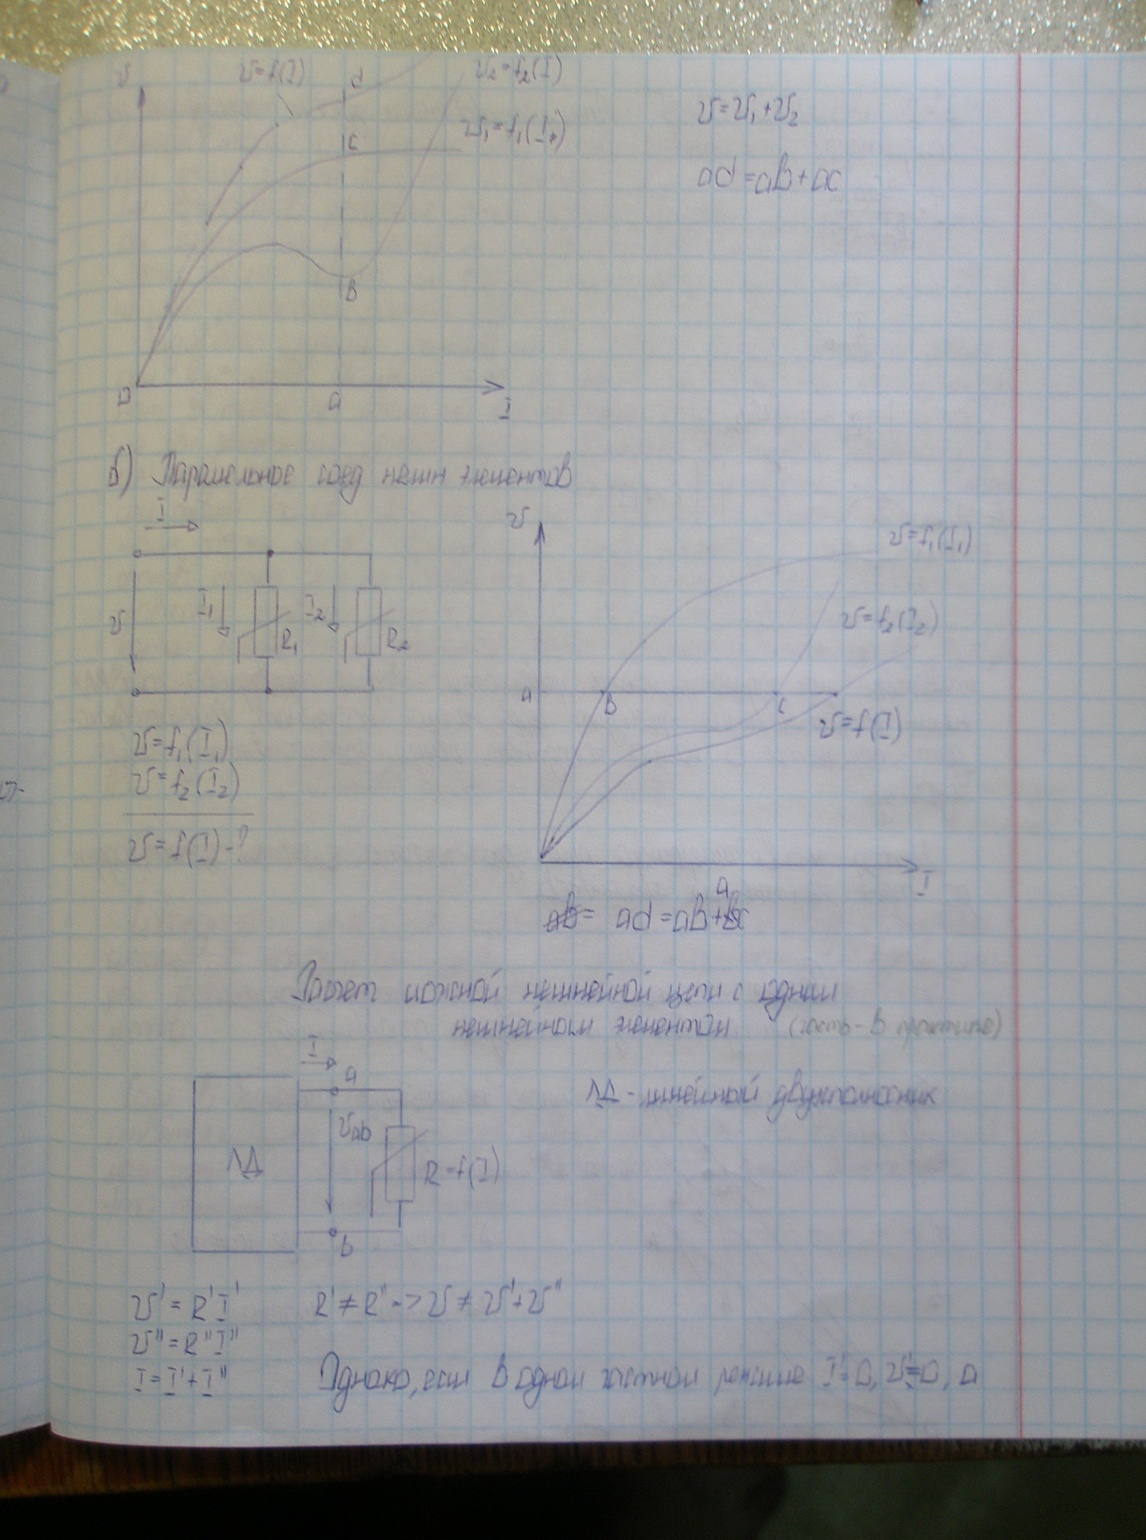 U
U=f(I)
d
U₂=f₂(I)
U₁=f₁(I₁)
c
B
0
a
I
U=U₁+U₂
ad=aB+ac
б) Параллельное соед нелин элементов
I
U
I₁
R₁
I₂
R₂
U=f₁(I₁)
U=f₂(I₂)
U=f(I)-?
U
U=f₁(I₁)
U=f₂(I₂)
a
B
c
U=f(I)
I
ad=aB+ac
Расчет сложной нелинейной цепи с одним
нелинейным элементом
I
a
Uab
ЛД
R=f(I)
b
ЛД - линейный двухполюсник
U'=R'I'
R'≠R''->U≠U'+U''
U''=R''I''
I=I'+I''
Однако, если в одном частном режиме I'=0, U'=0, а